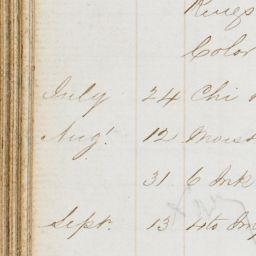 Rings
Color
July 24 Chi
Augt. 12 Moist
31 6 Ink
Sept. 13 4to